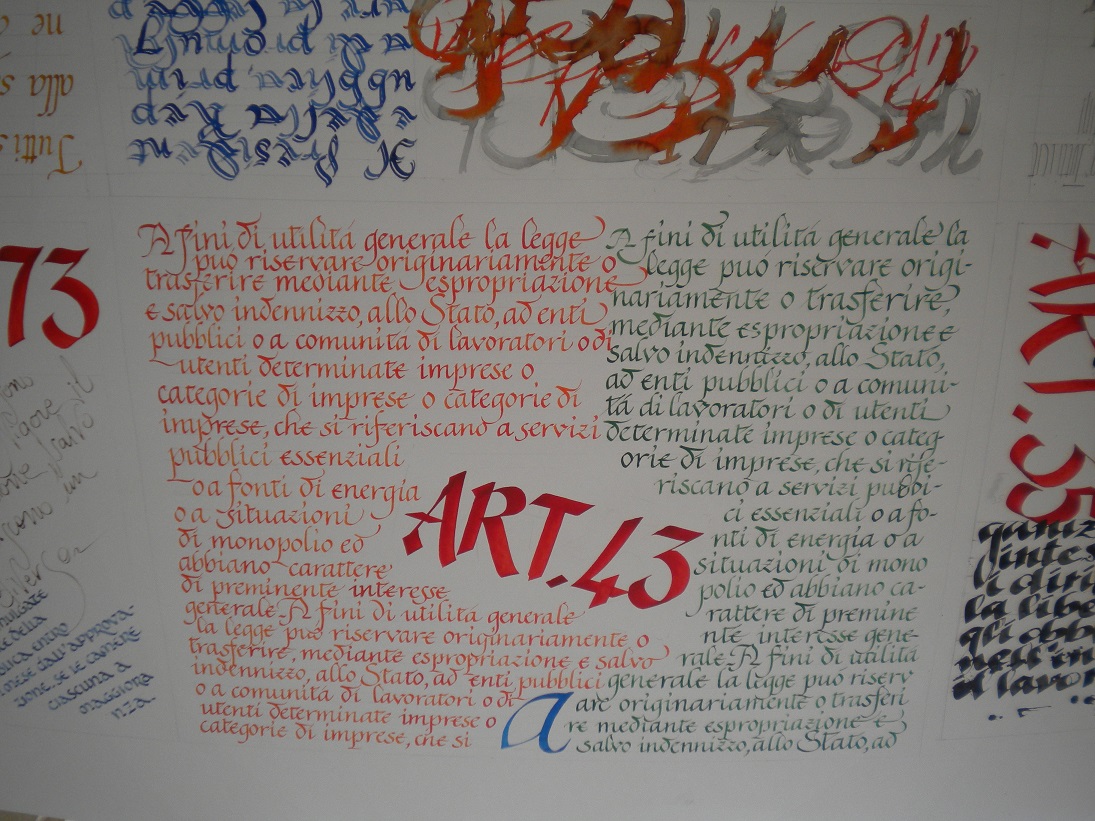 Tutti s
alla s
ne
Il President
e della Rep
ubblica, prim
a di promu
73
A fini di utilitá generale la legge
puó riservare originariamente o
trasferire mediante espropriazione
e salvo indennizzo, allo Stato, ad enti
pubblici o a comunitá di lavoratori o di
utenti determinate imprese o
categorie di imprese o categorie di
imprese, che si riferiscano a servizi
pubblici essenziali
o a fonti di energia
o a situazioni
di monopolio ed
abbiano carattere
di preminente interesse
generale. A fini di utilitá generale
la legge puó riservare originariamente o
trasferire, mediante espropriazione e salvo
indennizzo, allo Stato, ad enti pubblici
o a comunitá di lavoratori o di
utenti determinate imprese o
categorie di imprese, che si
ART. 43
A fini di utilitá generale la
legge puó riservare origi-
nariamente o trasferire,
mediante espropriazione e
salvo indennizzo, allo Stato,
ad enti pubblici o a comuni-
tá di lavoratori o di utenti
determinate imprese o categ
orie di imprese, che si rife-
riscano a servizi pubbli-
ci essenziali o a fo-
nti di energia o a
situazioni di mono
polio ed abbiano ca-
rattere di premine
nte interesse gene-
rale. A fini di utilitá
generale la legge puó riserv
a are originariamente o trasferi
re mediante espropriazione e
salvo indennizzo, allo Stato, ad
della
entro
mese dall'approva-
zione. se le camere
ciascuna a
maggiora
nza
ART. 35
la libe
gli obb
il lavor